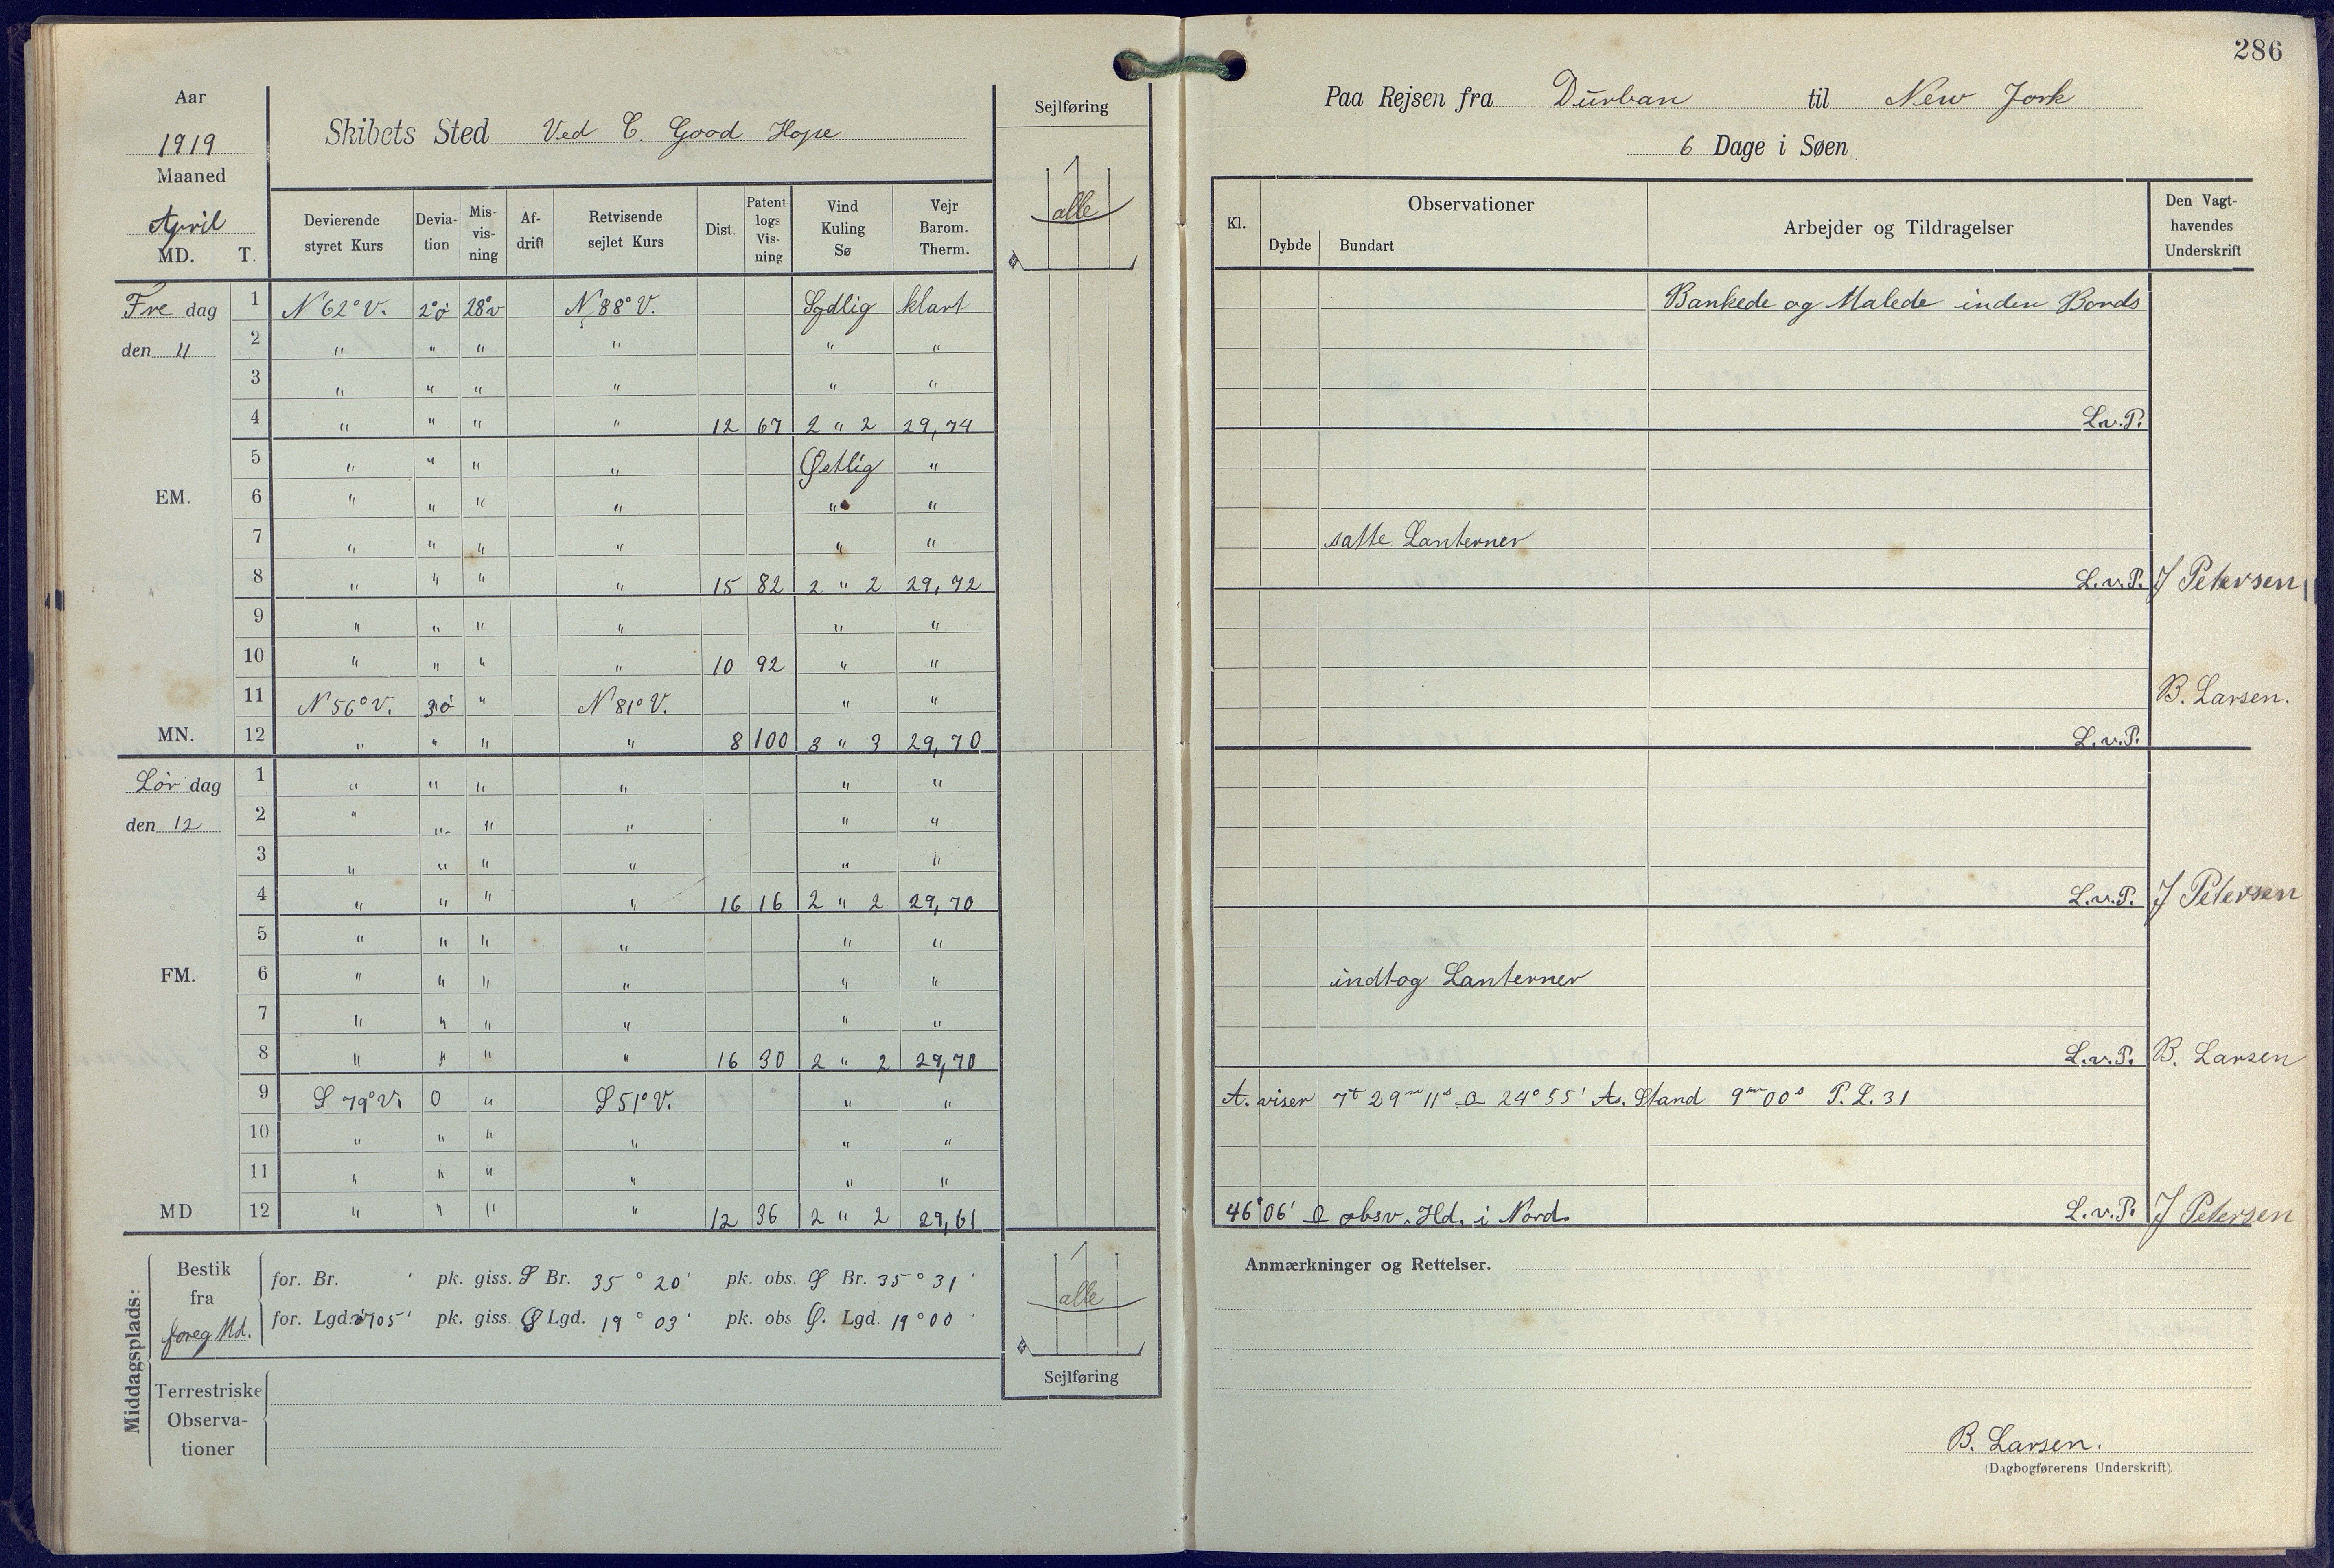 286
Aar
1919
Maaned
April
MD. T.
Skibets Sted Ved C. Good Hope
Sejlføring
alle
Devierende styret Kurs
Devia-tion
Mis-vis-ning
Af-drift
Retvisende sejlet Kurs
Dist.
Patent logs Vis-ning
Vind Kuling Sø
Vejr Barom. Therm.
Fre dag 1 N 62° V. 2° ö 28° v N 88° V. Sydlig klart
den 11 2 " " " " " "
3 " " " " " "
4 " " " " 12 67 2 " 2 29,74
5 " " " " Østlig "
EM. 6 " " " " " "
7 " " " " " "
8 " " " " 15 82 2 " 2 29,72
9 " " " " " "
10 " " " " 10 92 " "
11 N 56° V. 3° ö " N 81° V. " "
MN. 12 " " " " 8 100 3 " 3 29,70
Lör dag 1 " " " " " "
den 12 2 " " " " " "
3 " " " " " "
4 " " " " 16 16 2 " 2 29,70
5 " " " " " "
FM. 6 " " " " " "
7 " " " " " "
8 " " " " 16 30 2 " 2 29,70
9 S 79° V. 0 " S 51° V. " "
10 " " " " " "
11 " " " " " "
MD 12 " " " " 12 36 2 " 2 29,61
Middagsplads:
Bestik fra foreg Md.
for. Br. ' pk. giss. S Br. 35° 20' pk. obs. S Br. 35° 31'
for. Lgd. 705' pk. giss. Ø Lgd. 19° 03' pk. obs. Ø. Lgd. 19° 00'
Terrestriske Observa-tioner
alle
Sejlføring
Paa Rejsen fra Durban til New York
6 Dage i Søen
Kl.
Observationer
Dybde Bundart
Arbejder og Tildragelser
Den Vagt-havendes Underskrift
Bankede og Malede inden Bords
L.v.P.
satte Lanterner
L.v.P. J Petersen
B. Larsen.
L.v.P.
L.v.P. J Petersen
indtog Lanterner
L.v.P. B. Larsen
A. viser 7t 29m 11s 24° 55' As. Stand 9m 00s P. L. 31
46° 06' obsv. Hd. i Nord. L.v.P. J Petersen
Anmærkninger og Rettelser.
B. Larsen.
(Dagbogførerens Underskrift).